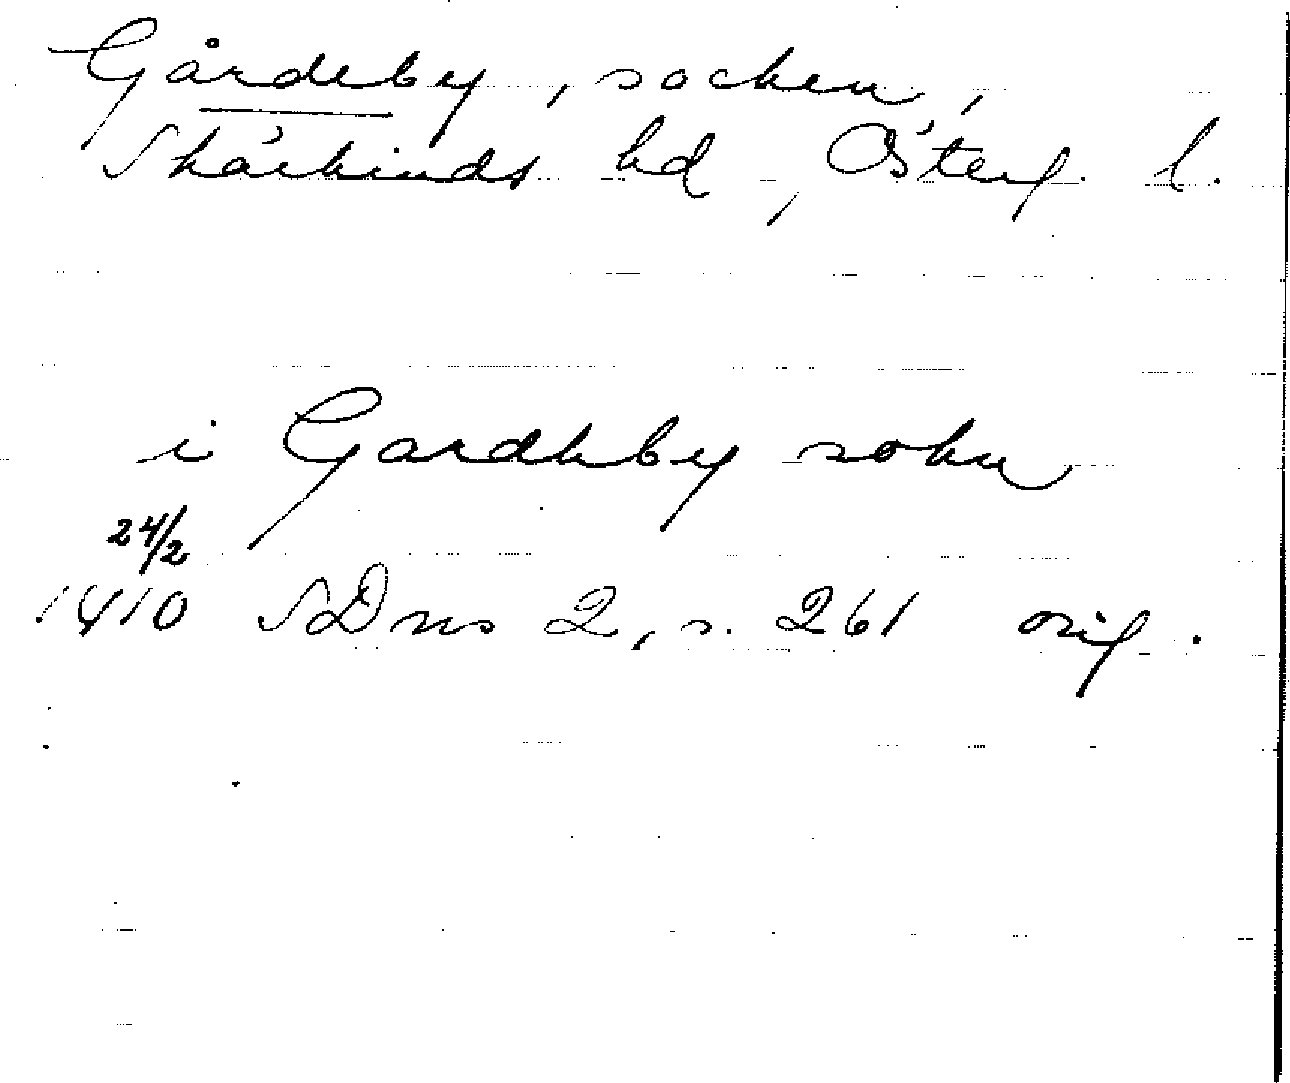 Gårdeby, socken,
Skärkinds hd, Österg. l.
i Gardhby sokn
24/2
1410 SDns 2, s. 261 orig.